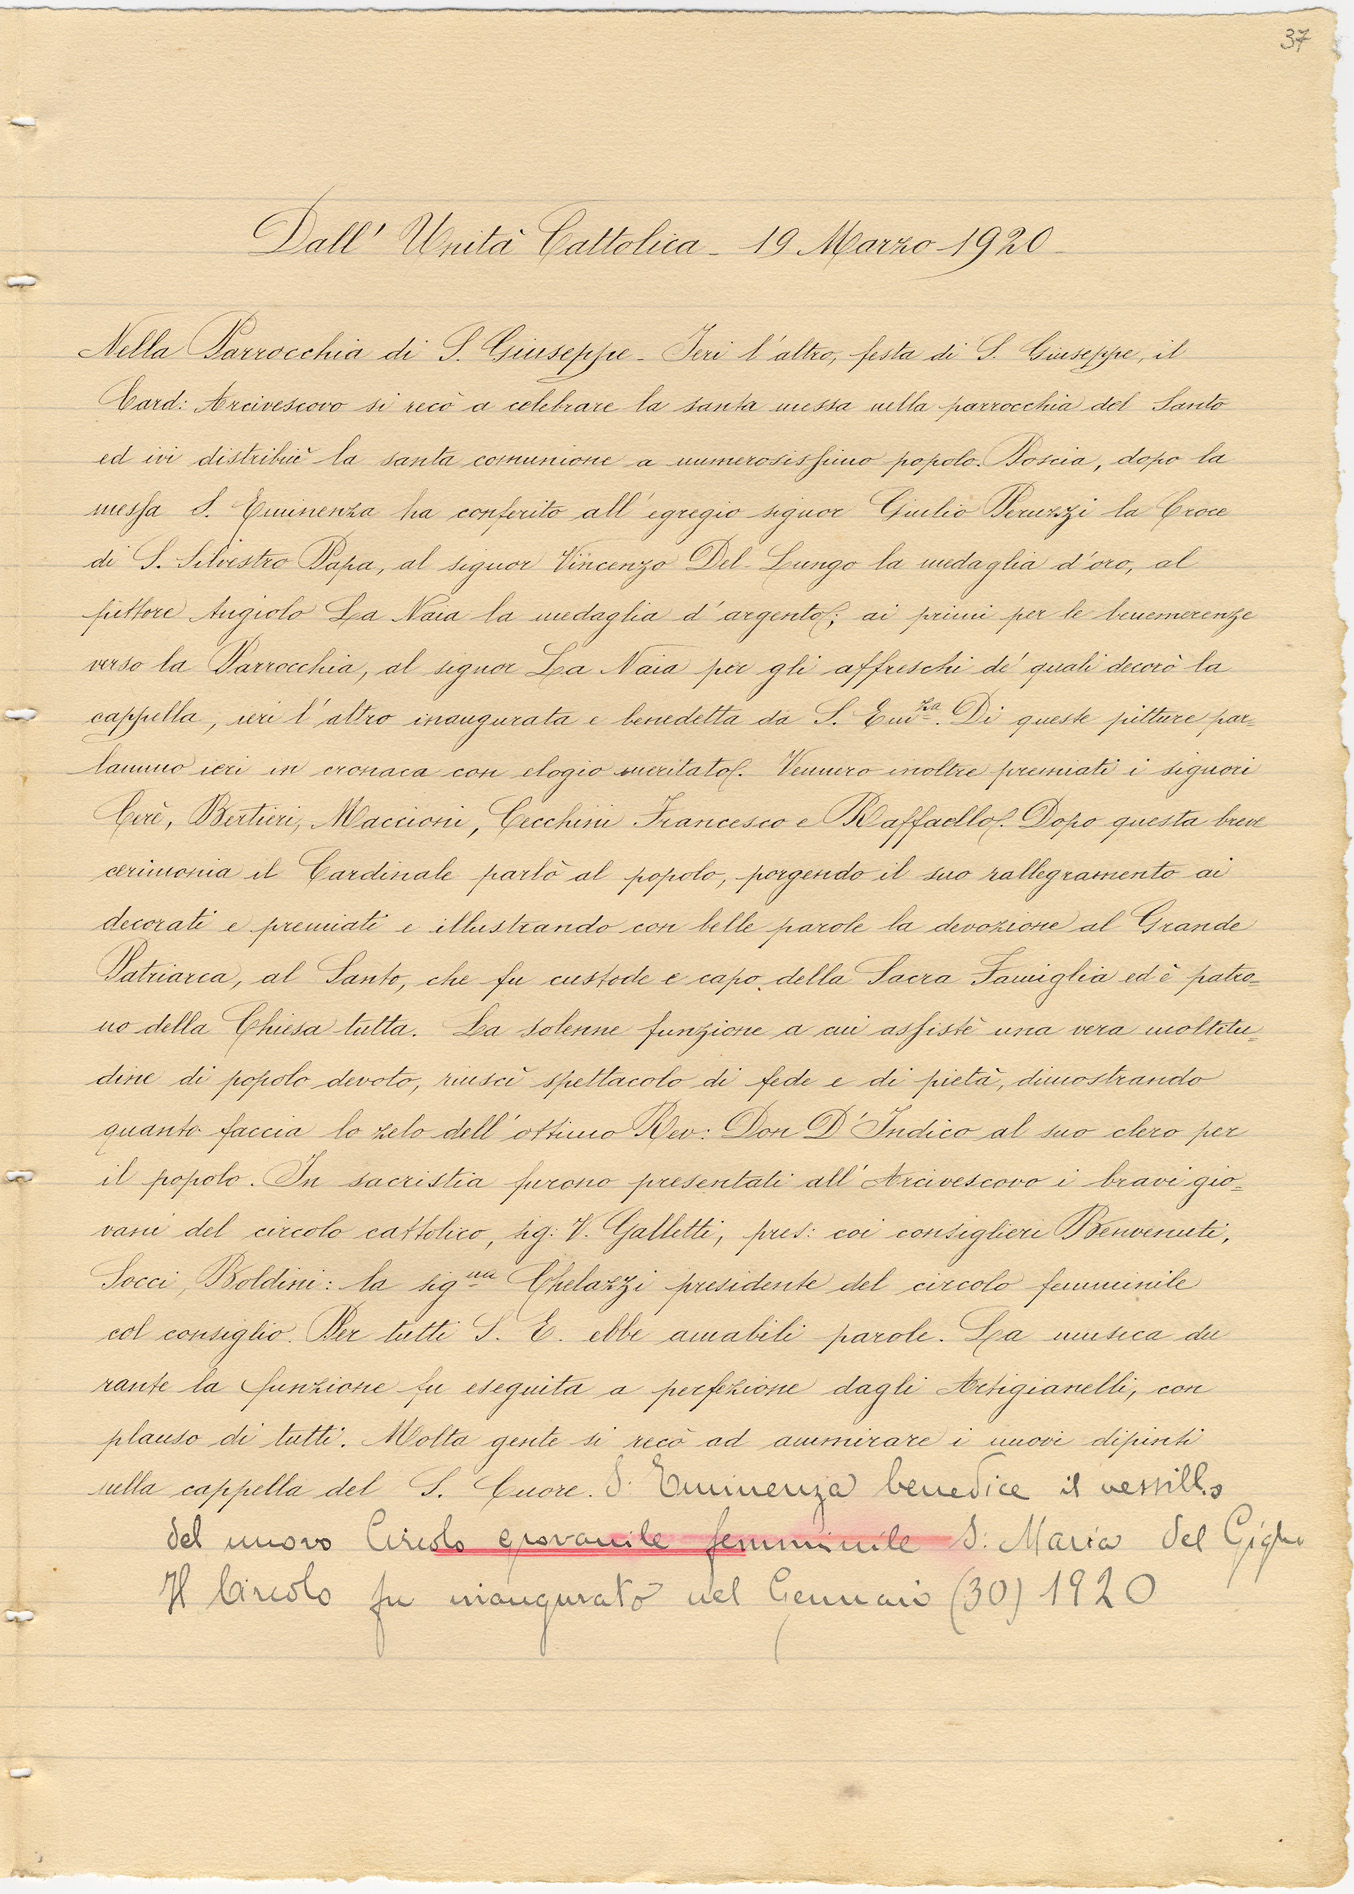 37
Dall' Unità Cattolica - 19 Marzo 1920 -
Nella Parrocchia di S. Giuseppe - Ieri l'altro, festa di S. Giuseppe, il
Card: Arcivescovo si recò a celebrare la santa messa nella parrocchia del Santo
ed ivi distribuì la santa comunione a numerosissimo popolo. Poscia, dopo la
messa S. Eminenza ha conferito all'egregio signor Giulio Peruzzi la Croce
di S. Silvestro Papa, al signor Vincenzo Del Lungo la medaglia d'oro, al
pittore Angiolo La Naia la medaglia d'argento; ai primi per le benemerenze
verso la Parrocchia, al signor La Naia per gli affreschi de' quali decorò la
cappella, ieri l'altro inaugurata e benedetta da S. Em.za. Di queste pitture par=
lammo ieri in cronaca con elogio meritato. Vennero inoltre premiati i signori
Cerè, Bertieri, Maccioni, Cecchini Francesco e Raffaello. Dopo questa breve
cerimonia il Cardinale parlò al popolo, porgendo il suo rallegramento ai
decorati e premiati e illustrando con belle parole la devozione al Grande
Patriarca, al Santo, che fu custode e capo della Sacra Famiglia ed è patro=
no della Chiesa tutta. La solenne funzione a cui assistè una vera moltitu=
dine di popolo devoto, riuscì spettacolo di fede e di pietà, dimostrando
quanto faccia lo zelo dell'ottimo Rev: Don D'Indico al suo clero per
il popolo. In sacristia furono presentati all'Arcivescovo i bravi gio=
vani del circolo cattolico, sig: V. Galletti, pres: coi consiglieri Benvenuti,
Socci, Boldini: la sig.na Chelazzi presidente del circolo femminile
col consiglio. Per tutti S. E. ebbe amabili parole. La musica du
rante la funzione fu eseguita a perfezione dagli Artigianelli, con
plauso di tutti. Molta gente si recò ad ammirare i nuovi dipinti
nella cappella del S. Cuore. S: Eminenza benedice il vessillo
del nuovo Circolo giovanile femminile S: Maria del Giglio
Il Circolo fu inaugurato nel Gennaio (30) 1920